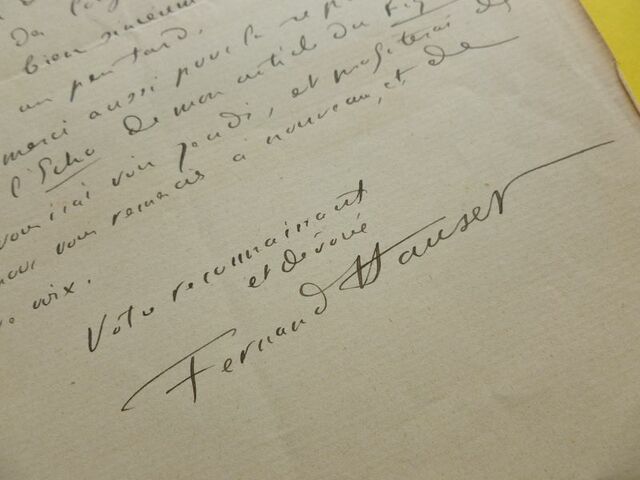 bien sincèrem
un peu tard.
merci aussi pour la rep
l'Echo de mon article du Fig
vous irai voir jeudi, et profiterai de
pour vous remercier à nouveau, et de
voix.
Votre reconnaissant
et dévoué
Fernand Hauser